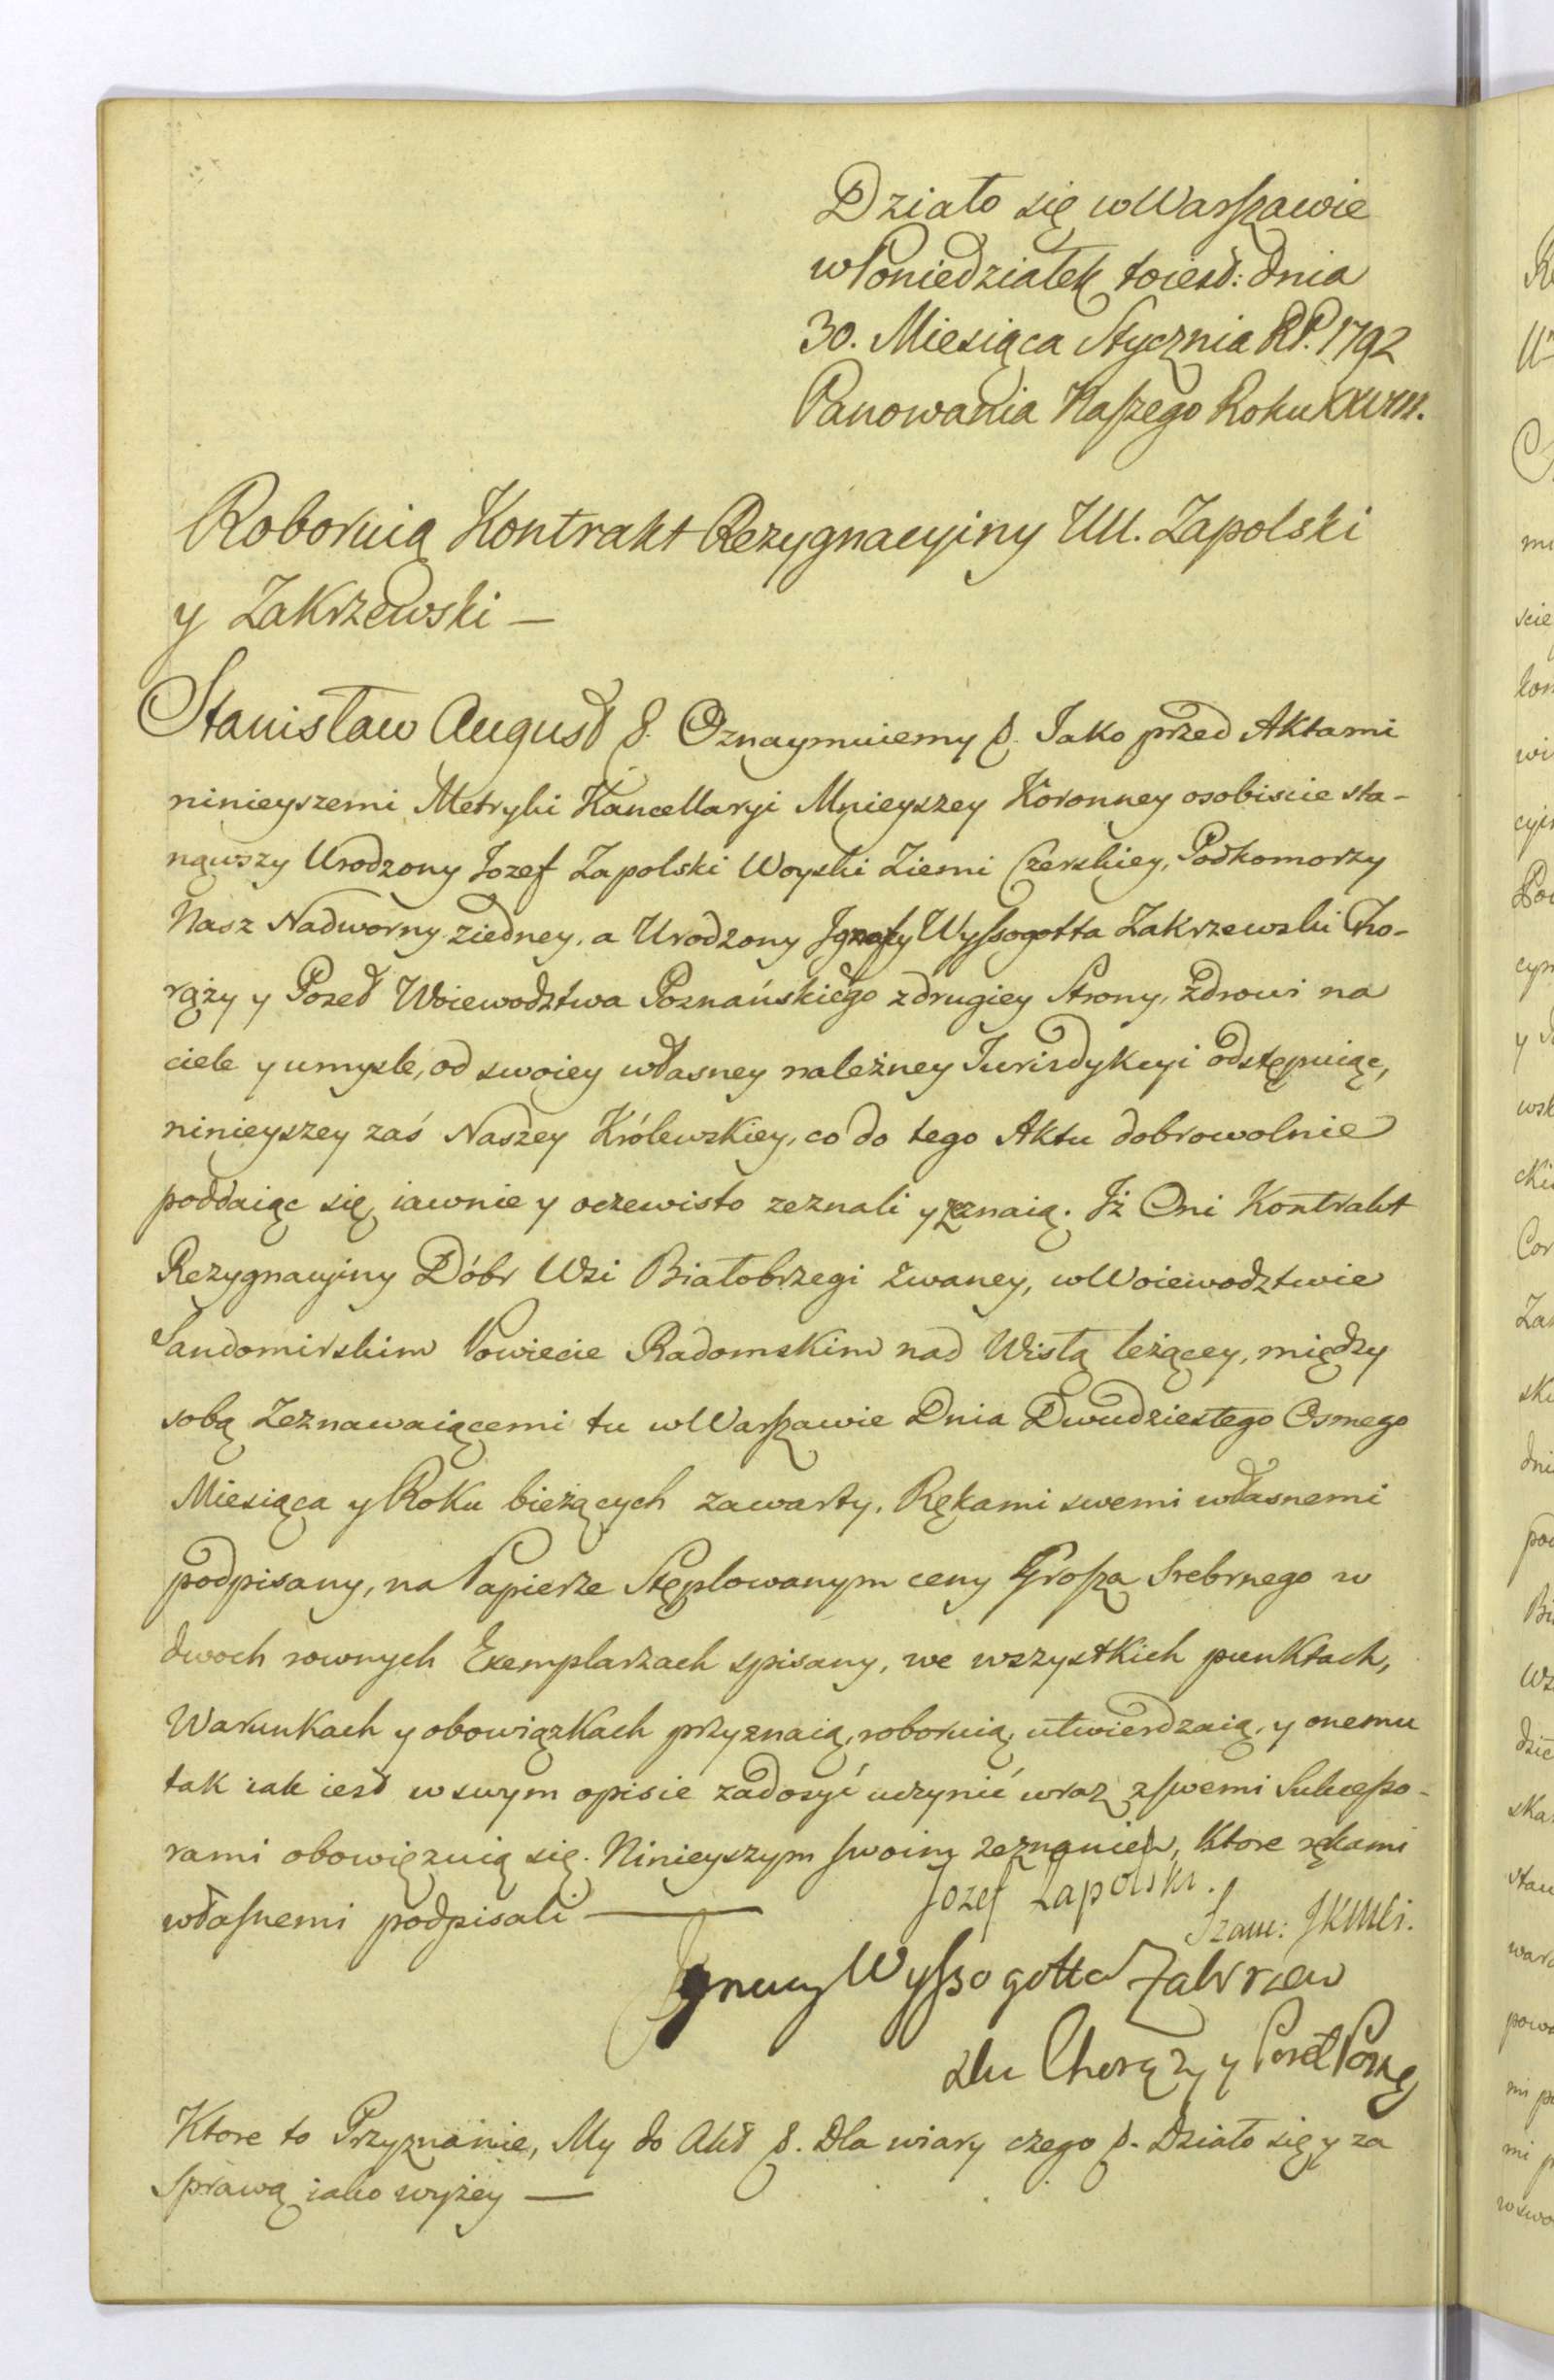 Działo się w Warſzawie
w Poniedziałek toiest: dnia
30. Miesiąca Stycznia R.P. 1792
Panowania Naſzego Roku XXVIII.
Roboruią Kontrakt Rezygnacyiny UU. Zapolski
y Zakrzewski —
Stanisław August &. Oznaymuiemy &. Jako przed Aktami
ninieyszemi Metryki Kancellaryi Mnieyszey Koronney osobiscie sta-
nąwszy Urodzony Jozef Zapolski Woyski Ziemi Czerskiey, Podkomorzy
Nasz Nadworny ziedney, a Urodzony Jgnacy Wyſsogotta Zakrzewski Cho-
rąży y Poseł Woiewodztwa Poznańskiego z drugiey Strony, zdrowi na
ciele y umysle, od swoiey własney należney Jurisdykcyi odstępuiąc,
ninieyszey zaś Naszey Królewskiey, co do tego Aktu dobrowolnie
poddaiąc się, iawnie y oczewisto zeznali y zeznaią. Jż Oni Kontrakt
Rezygnacyiny Dóbr Wsi Białobrzegi zwaney, w Woiewodztwie
Sandomirskim Powiecie Radomskim nad Wisłą leżącey, między
sobą Zeznawaiącemi tu w Warſzawie Dnia Dwudziestego Osmego
Miesiąca y Roku bieżących zawarty, Rękami swemi własnemi
podpisany, na Papierze Stęplowanym ceny Groſza Srebrnego w
dwoch rownych Exemplarzach spisany, we wszystkich punktach,
Warunkach y obowiązkach przyznaią, roboruią, utwierdzaią, y onemu
tak iak iest w swym opisie zadosyć uczynić wraz z ſwemi Sukceſso-
rami obowięzuią się. Ninieyszym ſwoim zeznaniem, ktore rękami
właſnemi podpisali —
Jozef Zapolski.
Szam: JKMCi.
Jgnacy Wyſsogotta Zakrzew
ski Chorąży y Poseł Pozn
Ktore to Przyznanie, My do Akt &. Dla wiary czego &. Działo się y za
sprawą iako wyżey —